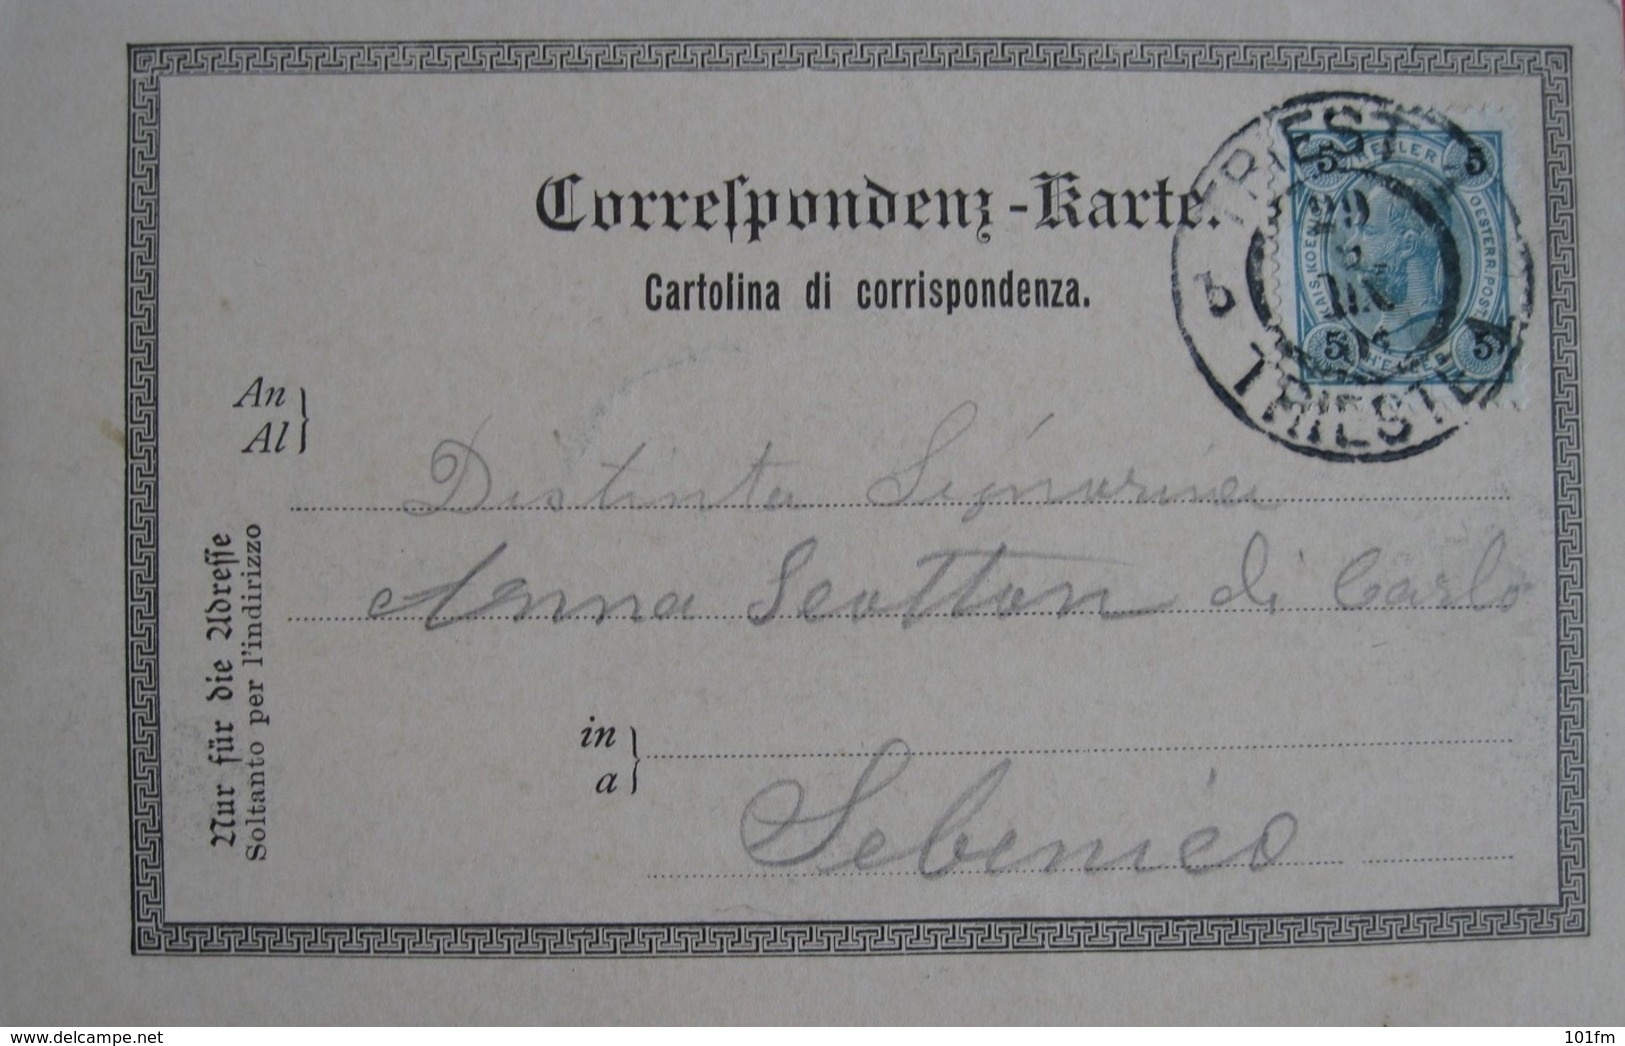 Correſpondenz-Karte.
Cartolina di corrispondenza.
TRIEST
TRIESTE
29
5 HELLER 5
KAIS. KOENIGL. OESTERR. POST
5 HELLER 5
An
Al
Distinta Signorina
Anna Scotton di Carlo
in
a
Sebenico
Nur für die Adreſſe
Soltanto per l'indirizzo
www.delcampe.net
101fm